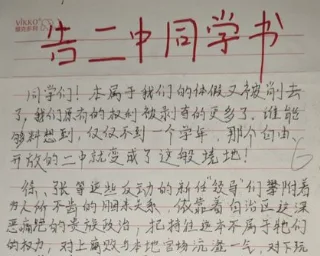 vikko
告二中同学书
同学们！本属于我们的体假又被削去
了，我们原有的权利被剥夺的更多了。谁能
够料想到，仅仅不到一个学年，那个自由、
开放的二中就变成了这般境地！
张等这些反动的新任“领导”们攀附着
为人所不齿的旧日关系，依靠着自治区这深
恶痛绝的贵族政治，把持往这本不属于他们
的权力，对上腐败与本地官场沆瀣一气，对下玩